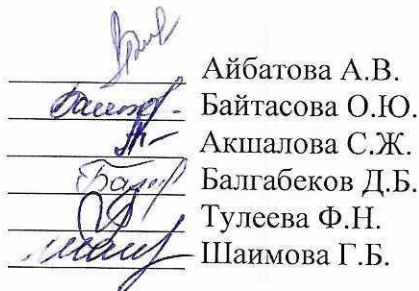 Айбатова А.В.
Байтасова О.Ю.
Акшалова С.Ж.
Балгабеков Д.Б.
Тулеева Ф.Н.
Шаимова Г.Б.